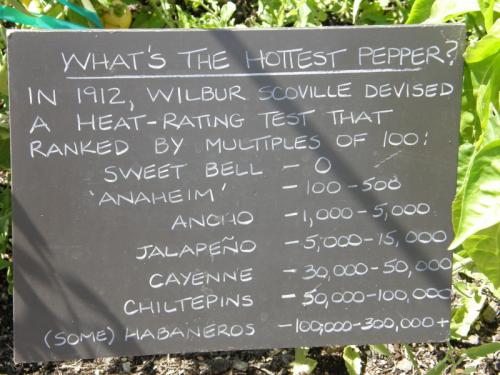 WHAT'S THE HOTTEST PEPPER?
IN 1912, WILBUR SCOVILLE DEVISED
A HEAT-RATING TEST THAT
RANKED BY MULTIPLES OF 100:
SWEET BELL - 0
'ANAHEIM' - 100-500
ANCHO - 1,000-5,000
JALAPEÑO - 5,000-15,000
CAYENNE - 30,000-50,000
CHILTEPINS - 50,000-100,000
(SOME) HABAÑEROS - 100,000-300,000+